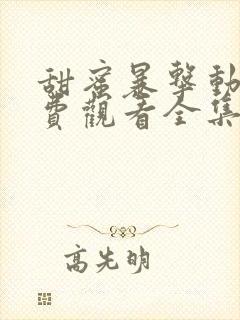 甜蜜暴擊動
費觀看全集
高先明